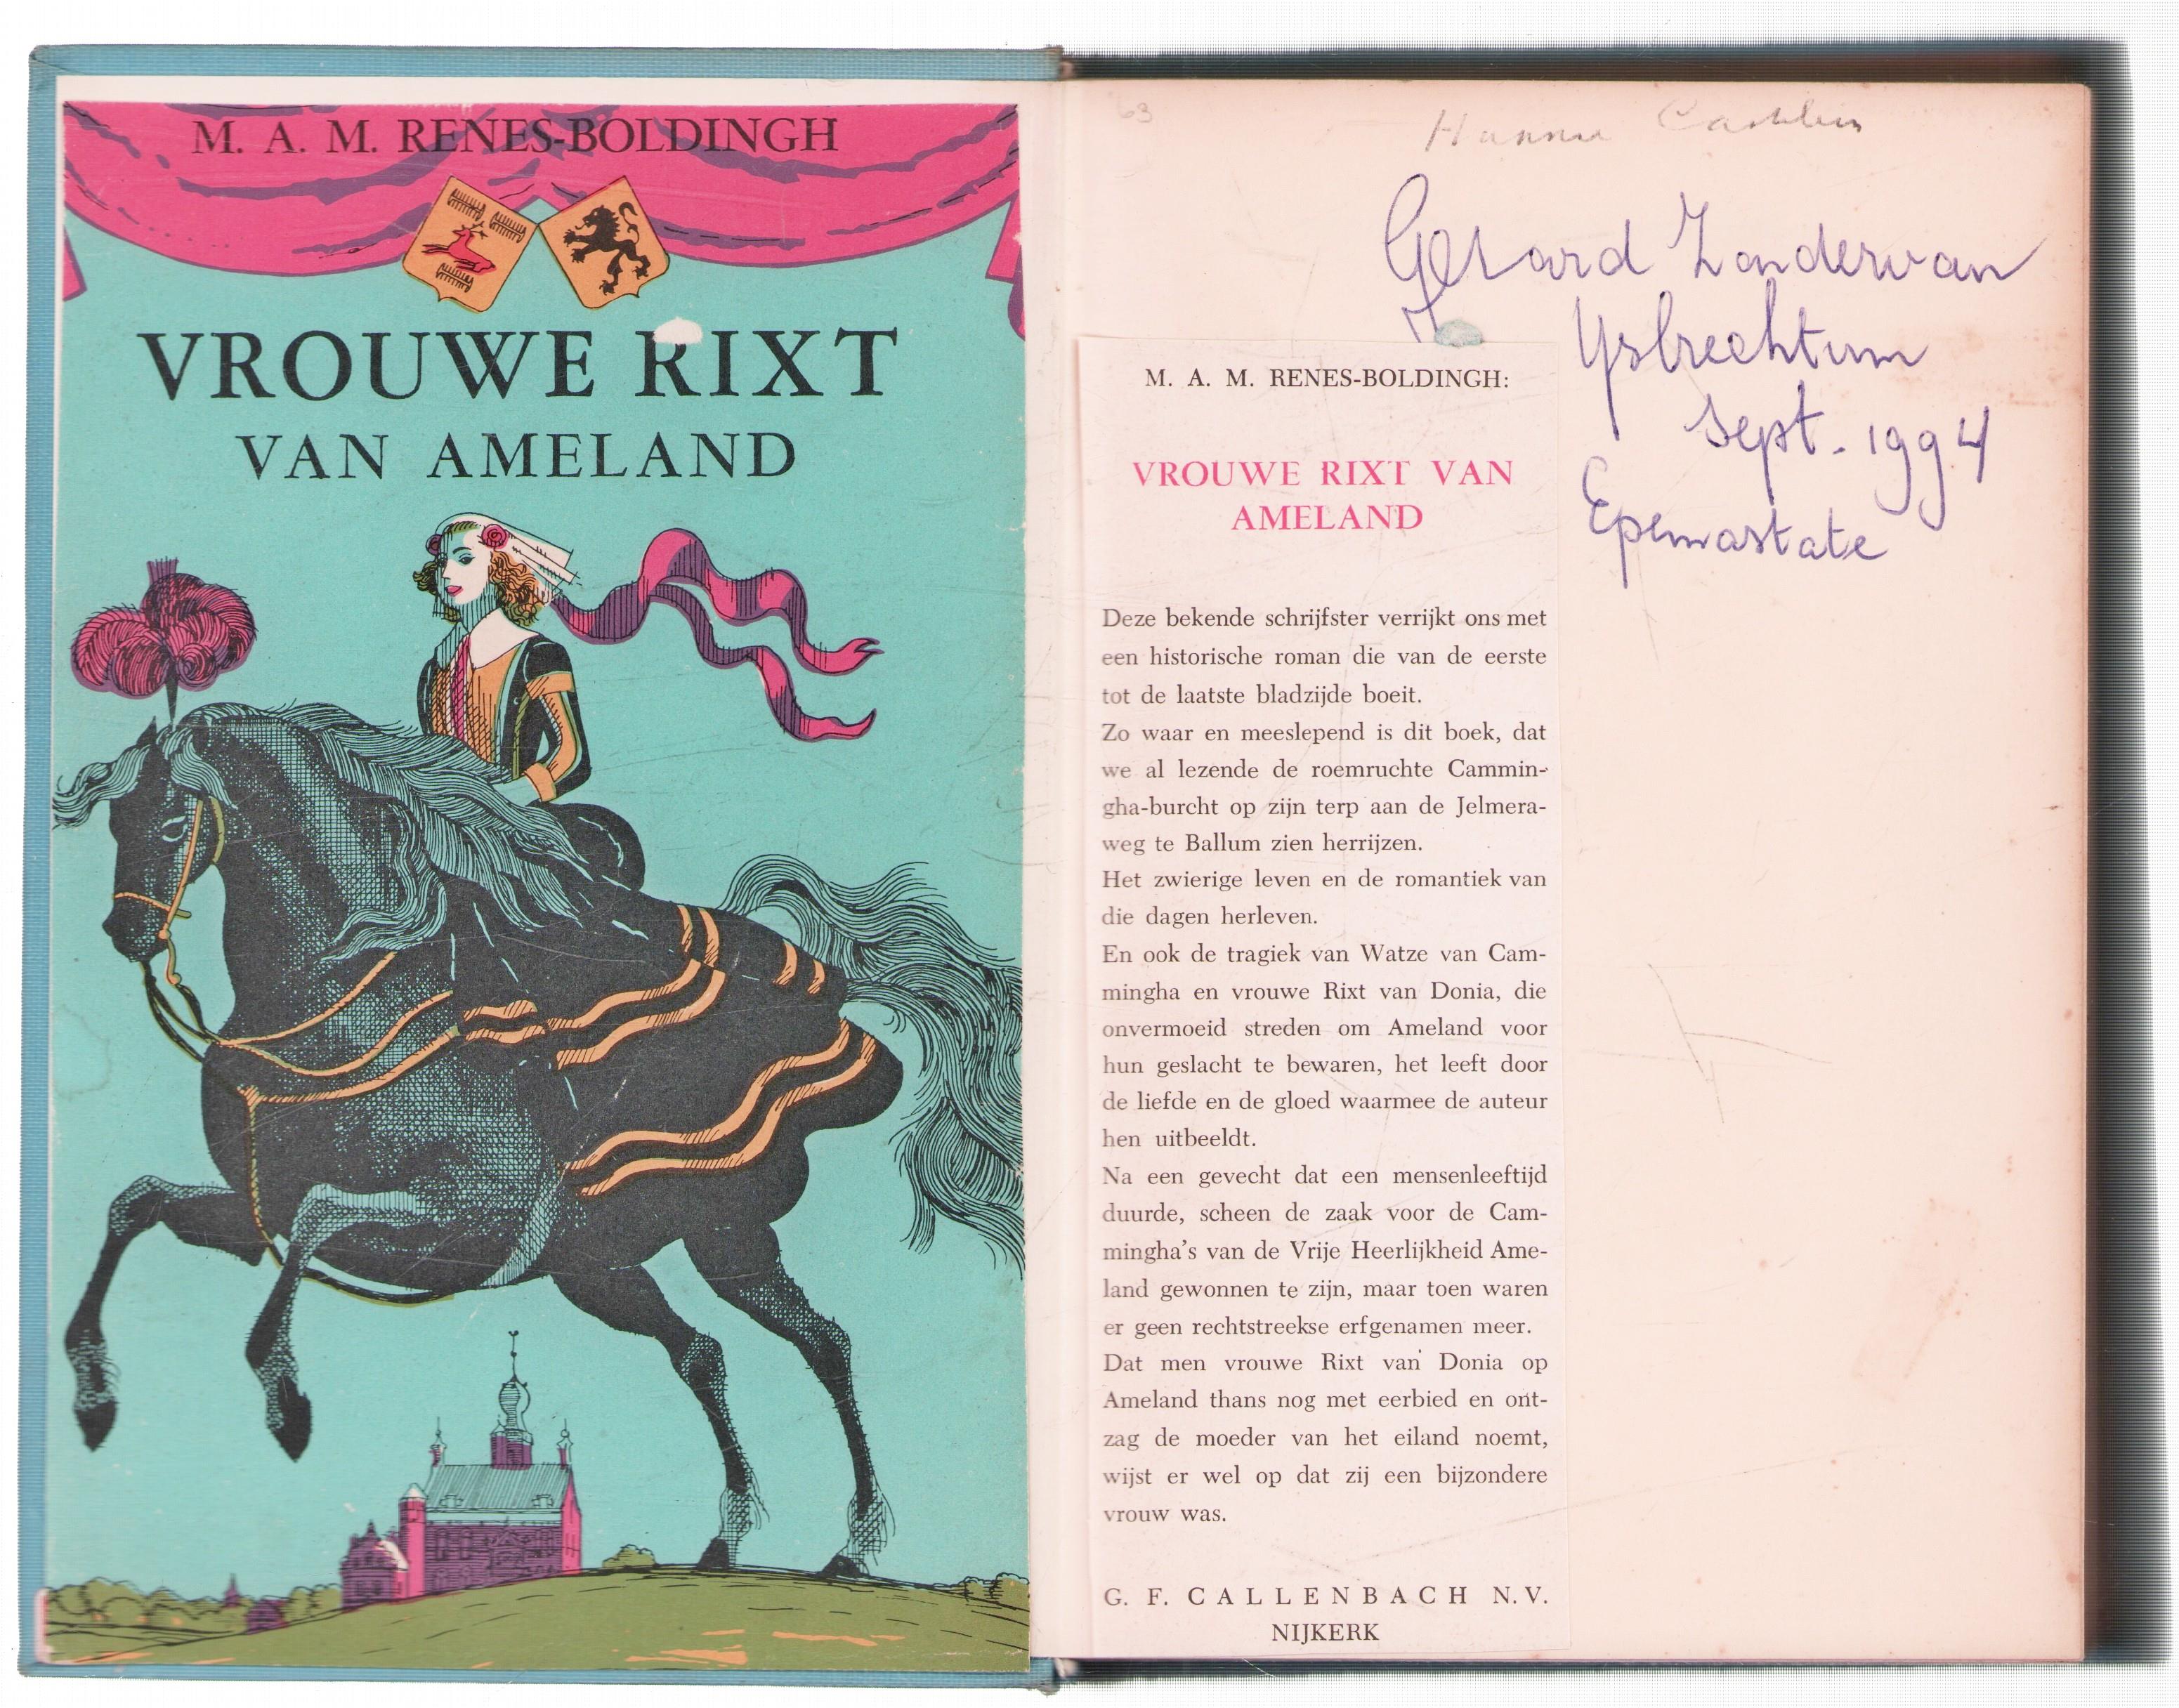 M. A. M. RENES-BOLDINGH
VROUWE RIXT
VAN AMELAND
63
Gerard Zondervan
Ysbrechtum
Sept. 1994
Epemastate
M. A. M. RENES-BOLDINGH:
VROUWE RIXT VAN
AMELAND
Deze bekende schrijfster verrijkt ons met
een historische roman die van de eerste
tot de laatste bladzijde boeit.
Zo waar en meeslepend is dit boek, dat
we al lezende de roemruchte Cammin-
gha-burcht op zijn terp aan de Jelmera-
weg te Ballum zien herrijzen.
Het zwierige leven en de romantiek van
die dagen herleven.
En ook de tragiek van Watze van Cam-
mingha en vrouwe Rixt van Donia, die
onvermoeid streden om Ameland voor
hun geslacht te bewaren, het leeft door
de liefde en de gloed waarmee de auteur
hen uitbeeldt.
Na een gevecht dat een mensenleeftijd
duurde, scheen de zaak voor de Cam-
mingha's van de Vrije Heerlijkheid Ame-
land gewonnen te zijn, maar toen waren
er geen rechtstreekse erfgenamen meer.
Dat men vrouwe Rixt van Donia op
Ameland thans nog met eerbied en ont-
zag de moeder van het eiland noemt,
wijst er wel op dat zij een bijzondere
vrouw was.
G. F. CALLENBACH N.V.
NIJKERK